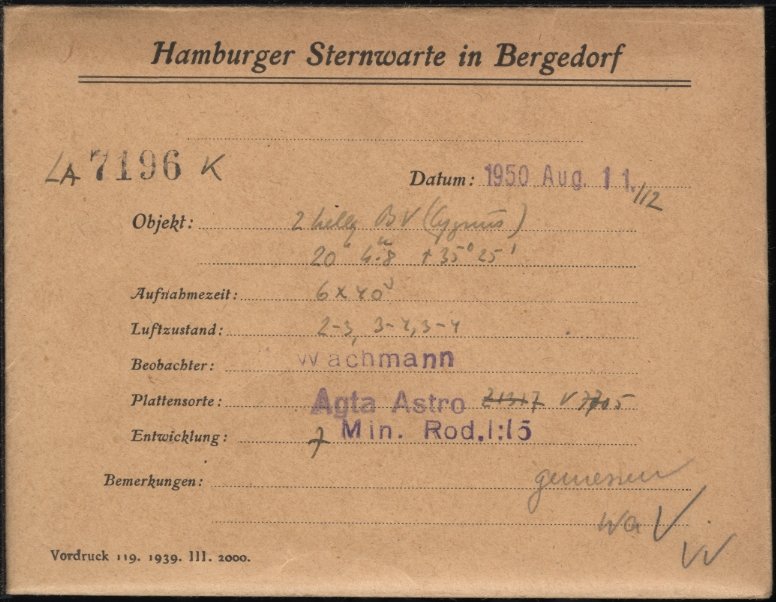 Hamburger Sternwarte in Bergedorf
LA 7196 K
Datum: 1950 Aug. 11./12
Objekt: 2 BV (Cygnus)
20ʰ 4ᵐ.8 +35° 25'
Aufnahmezeit: 6 x 40
Luftzustand: 2-3, 3-4, 3-4
Beobachter: Wachmann
Plattensorte: Agfa Astro
Entwicklung: 7 Min. Rod. 1:15
Bemerkungen: gemessen
Wa
Vordruck 119. 1939. III. 2000.